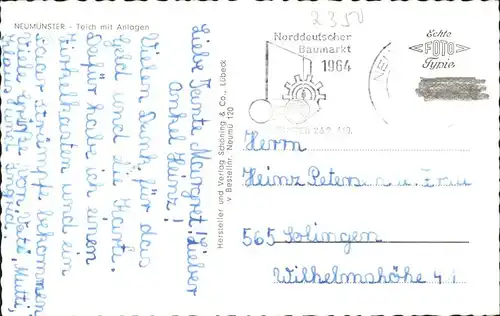 NEUMÜNSTER - Teich mit Anlagen
2350
Norddeutscher
Baumarkt
1964
Echte
FOTO
Typie
Liebe Tante Margret! Lieber
Onkel Heinz!
Vielen Dank für das
Geld und die Karte.
Dafür habe ich einen
Zirkelkasten und ein
Paar Strümpfe bekommen
Viele Grüße von Vati, Mutti,
und Sigrid.
Hersteller und Verlag Schöning & Co., Lübeck
Bestellnr. Neumü 120
Herrn
Heinz Petersen u. Frau
565 Solingen
Wilhelmshöhe 41